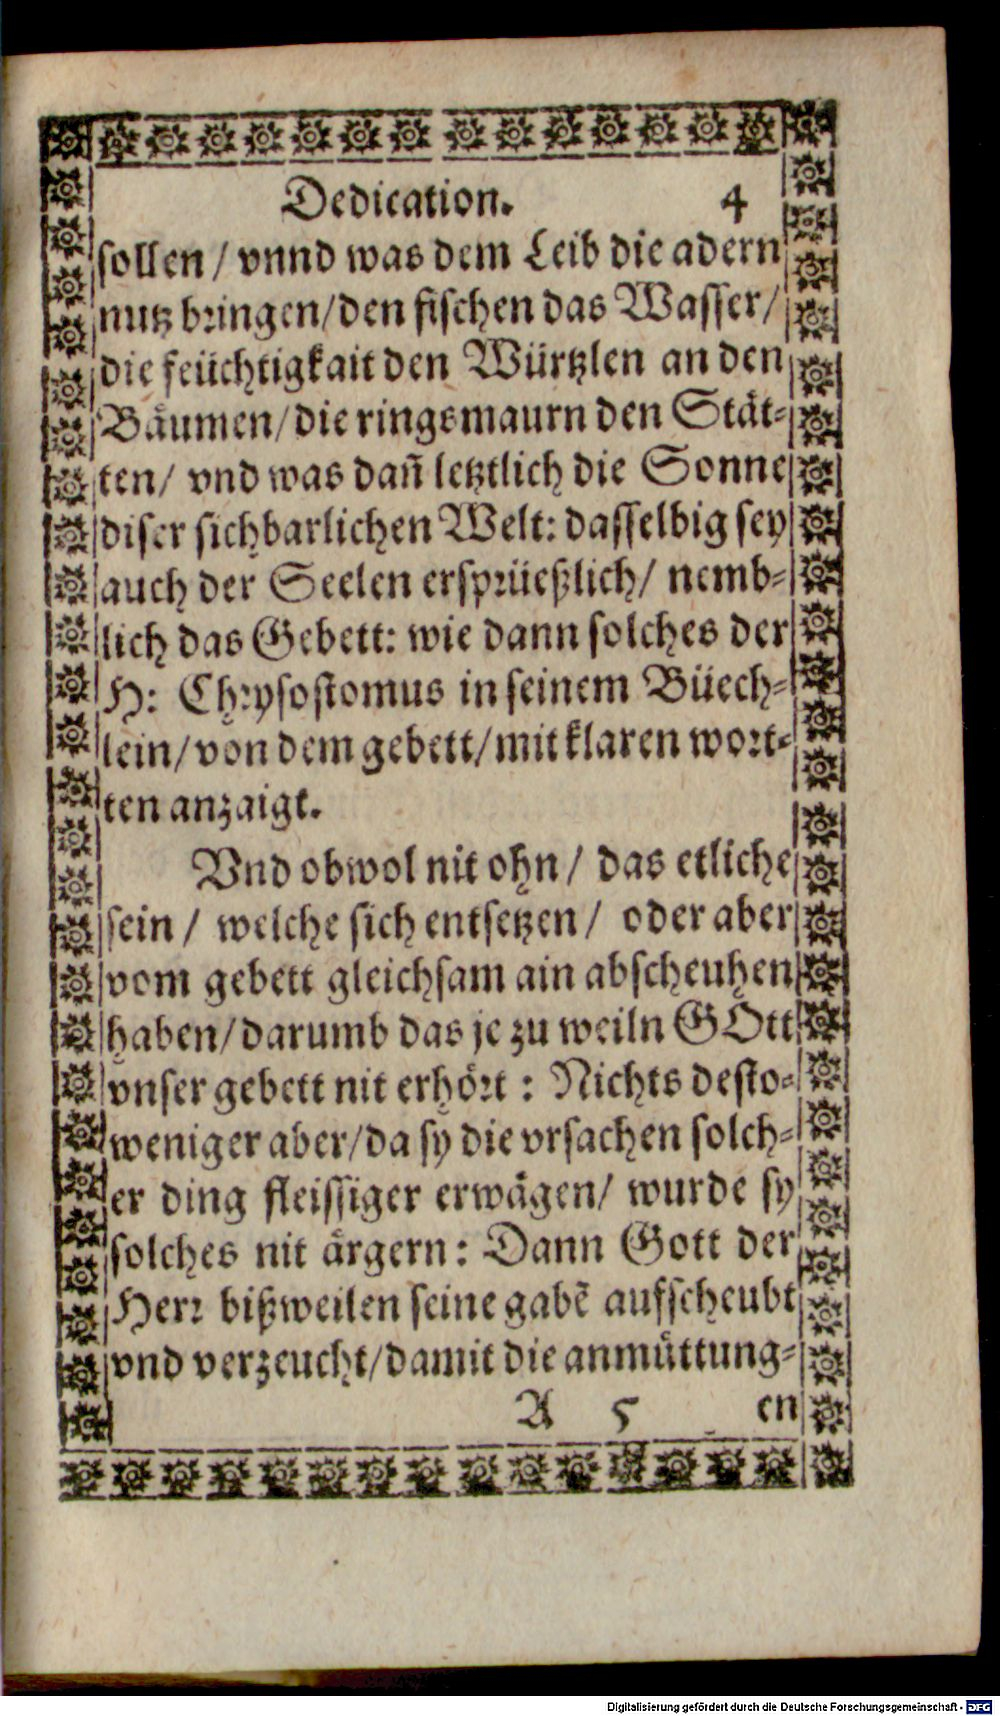 Dedication. 4
sollen / vnnd was dem Leib die adern
nutz bringen/den fischen das Wasser/
die feüchtigkait den Würtzlen an den
Bäumen/die ringsmaurn den Stät-
ten/ vnd was dañ letztlich die Sonne
diser sichbarlichen Welt: dasselbig sey
auch der Seelen ersprüeßlich/ nemb-
lich das Gebett: wie dann solches der
H: Chrysostomus in seinem Büech-
lein/von dem gebett/mit klaren wort-
ten anzaigt.
Vnd obwol nit ohn / das etliche
sein / welche sich entsetzen / oder aber
vom gebett gleichsam ain abscheuhen
haben/darumb das je zu weiln GOtt
vnser gebett nit erhört : Nichts desto-
weniger aber/da sy die vrsachen solch-
er ding fleissiger erwägen/ wurde sy
solches nit ärgern: Dann Gott der
Herr bißweilen seine gabẽ aufscheubt
vnd verzeucht/damit die anmüttung-
A 5 en
Digitalisierung gefördert durch die Deutsche Forschungsgemeinschaft - DFG